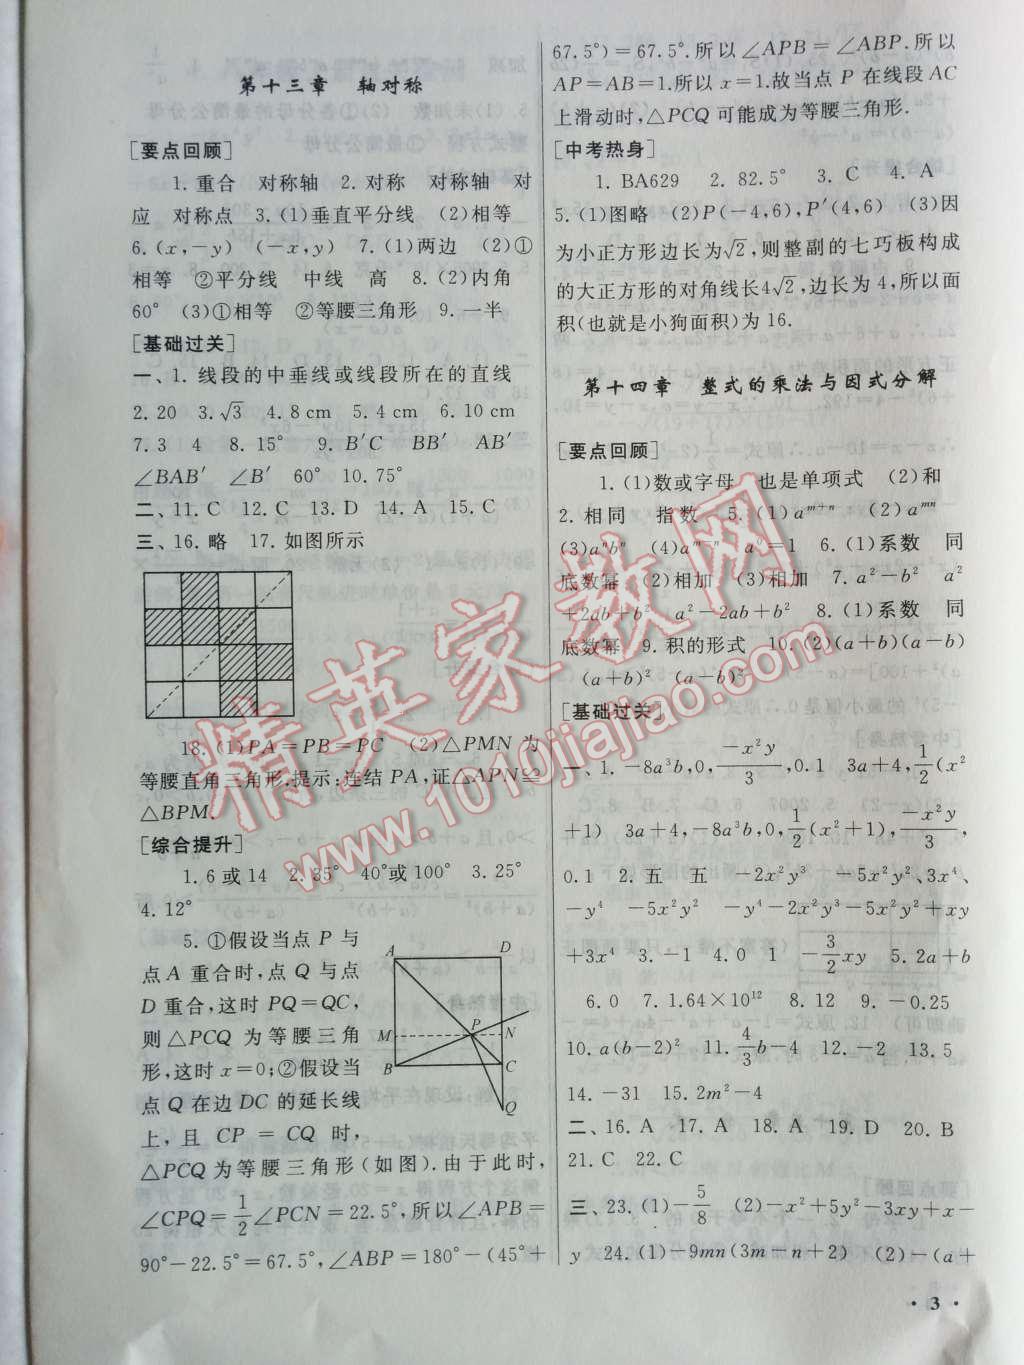 第十三章 轴对称
[要点回顾]
1.重合 对称轴 2.对称 对称轴 对
应 对称点 3.(1)垂直平分线 (2)相等
6.(x,-y) (-x,y) 7.(1)两边 (2)①
相等 ②平分线 中线 高 8.(2)内角
60° (3)①相等 ②等腰三角形 9.一半
[基础过关]
一、1.线段的中垂线或线段所在的直线
2.20 3.√3 4.8 cm 5.4 cm 6.10 cm
7.3 4 8.15° 9.B′C BB′ AB′
∠BAB′ ∠B′ 60° 10.75°
二、11.C 12.C 13.D 14.A 15.C
三、16.略 17.如图所示
18.(1)PA=PB=PC (2)△PMN 为
等腰直角三角形,提示:连结 PA,证△APN≌
△BPM.
[综合提升]
1.6 或 14 2.35° 40°或 100° 3.25°
4.12°
5.①假设当点 P 与
点 A 重合时,点 Q 与点
D 重合,这时 PQ=QC,
则△PCQ 为等腰三角
形,这时 x=0;②假设当
点 Q 在边 DC 的延长线
上,且 CP = CQ 时,
△PCQ 为等腰三角形(如图).由于此时,
∠CPQ=1/2∠PCN=22.5°,所以∠APB=
90°-22.5°=67.5°,∠ABP=180°-(45°+
A
D
M
P
N
B
C
Q
67.5°)=67.5°.所以∠APB=∠ABP.所以
AP=AB=1.所以 x=1.故当点 P 在线段 AC
上滑动时,△PCQ 可能成为等腰三角形.
[中考热身]
1.BA629 2.82.5° 3.C 4.A
5.(1)图略 (2)P(-4,6),P′(4,6) (3)因
为小正方形边长为√2,则整副的七巧板构成
的大正方形的对角线长4√2,边长为 4,所以面
积(也就是小狗面积)为 16.
第十四章 整式的乘法与因式分解
[要点回顾]
1.(1)数或字母 也是单项式 (2)和
2.相同 指数 5.(1)a^{m+n} (2)a^{mn}
(3)a^n b^n (4)a^{m-n} a^0=1 6.(1)系数 同
底数幂 (2)相加 (3)相加 7.a²-b² a²
+2ab+b² a²-2ab+b² 8.(1)系数 同
底数幂 9.积的形式 10.(2)(a+b)(a-b)
(a+b)² (a-b)²
[基础过关]
一、1.-8a³b,0,-x²y/3,0.1 3a+4,1/2(x²
+1) 3a+4,-8a³b,0,1/2(x²+1),-x²y/3,
0.1 2.五 五 -2x²y³ -5x²y²、3x⁴、
-y⁴ -5x²y² -y⁴-2x²y³-5x²y²+xy
+3x⁴ 3.-1 4.0 1 -3/2xy 5.2a+b
6.0 7.1.64×10¹² 8.12 9.-0.25
10.a(b-2)² 11.4/3b-4 12.-2 13.5
14.-31 15.2m²-4
二、16.A 17.A 18.A 19.D 20.B
21.C 22.C
三、23.(1)-5/8 (2)-x²+5y²-3xy+x-
y 24.(1)-9mn(3m-n+2) (2)-(a+
· 3 ·
精英家教网
www.1010jiajiao.com